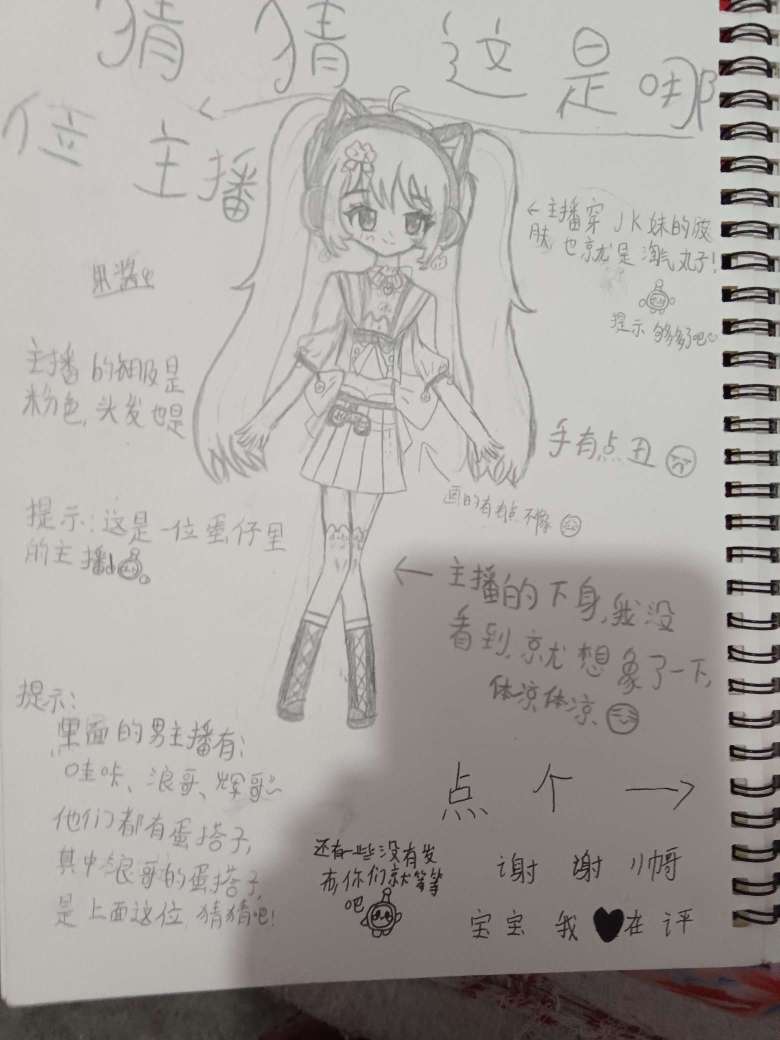 猜猜这是哪
位主播
←主播穿JK妹的皮
肤也就是淘气丸子!
提示够多了吧
果酱
主播的衣服是
粉色,头发也是
手有点丑
画的有点不像
提示:这是一位蛋仔里
的主播
←主播的下身,我没
看到,就想象了一下,
体凉体凉
提示:
里面的男主播有:
哇咔、浪哥、辉哥
他们都有蛋搭子,
其中浪哥的蛋搭子,
是上面这位,猜猜吧!
点个→
还有一些没有发
布,你们就等等
吧
谢谢小帼
宝宝我♥在评